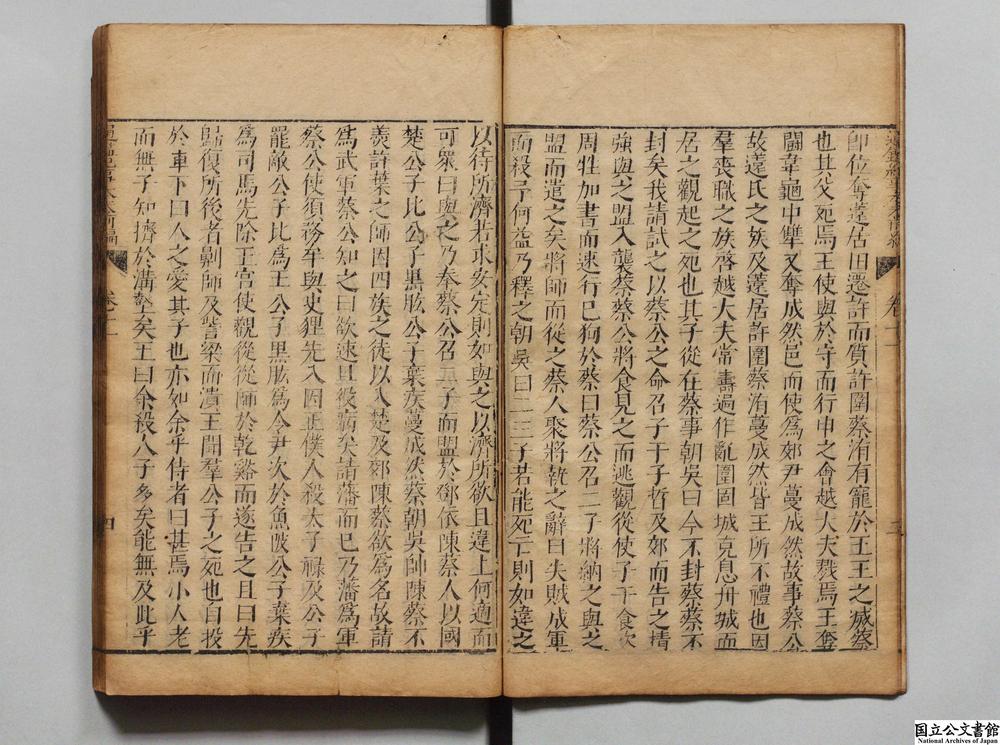 即位奪薳居田遷許而質許圍蔡洧有寵於王王之滅蔡
也其父死焉王使與於守而行申之會越大夫戮焉王奪
鬬韋龜中犨又奪成然邑而使爲郊尹蔓成然故事蔡公
故薳氏之族及薳居許圍蔡洧蔓成然皆王所不禮也因
羣喪職之族啓越大夫常壽過作亂圍固城克息舟城而
居之觀起之死也其子從在蔡事朝吳曰今不封蔡蔡不
封矣我請試之以蔡公之命召子干子晳及郊而告之情
強與之盟入襲蔡蔡公將食見之而逃觀從使子干食坎
用牲加書而速行已狥於蔡曰蔡公召二子將納之與之
盟而遣之矣將師而從之蔡人聚將執之辭曰失賊成軍
而殺予何益乃釋之朝吳曰二三子若能死亡則如違之
以待所濟若求安定則如與之以濟所欲且違上何適而
可衆曰與之乃奉蔡公召二子而盟於鄧依陳蔡人以國
楚公子比公子黑肱公子棄疾蔓成然蔡朝吳帥陳蔡不
羹許葉之師因四族之徒以入楚及郊陳蔡欲爲名故請
爲武軍蔡公知之曰欲速且役病矣請藩而已乃藩爲軍
蔡公使須務牟與史猈先入因正僕人殺太子祿及公子
罷敵公子比爲王公子黑肱爲令尹次於魚陂公子棄疾
爲司馬先除王宫使觀從從師於乾谿而遂告之且曰先
歸復所後者劓師及訾梁而潰王聞羣公子之死也自投
於車下曰人之愛其子也亦如余乎侍者曰甚焉小人老
而無子知擠於溝壑矣王曰余殺人子多矣能無及此乎
卷十二
四
国立公文書館
National Archives of Japan